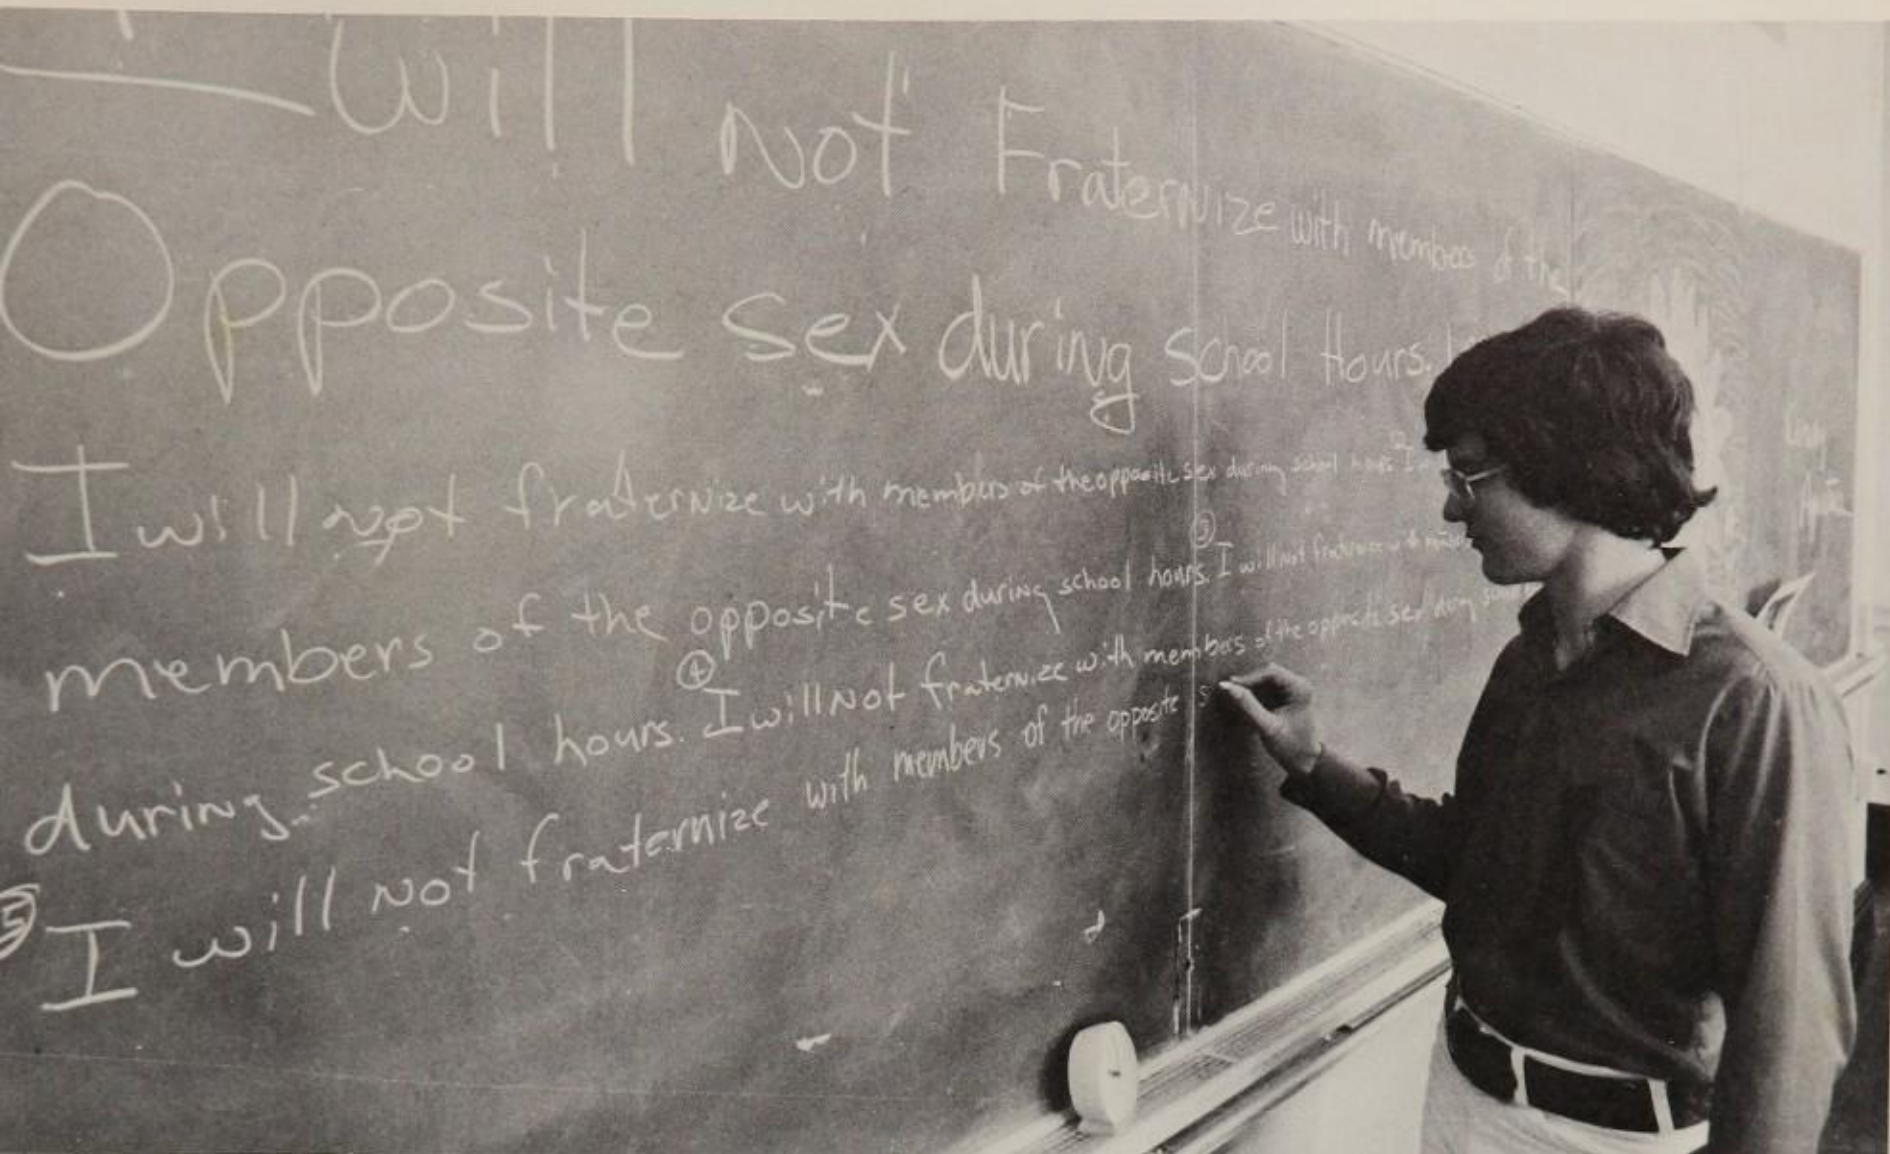 I will not Fraternize with members of the
Opposite sex during school Hours.
I will not fraternize with members of the opposite sex during school hours. I
members of the opposite sex during school hours. ③ I will not fraternize with
during school hours. ④ I will not fraternize with members of the opposite sex during
⑤ I will not fraternize with members of the opposite s